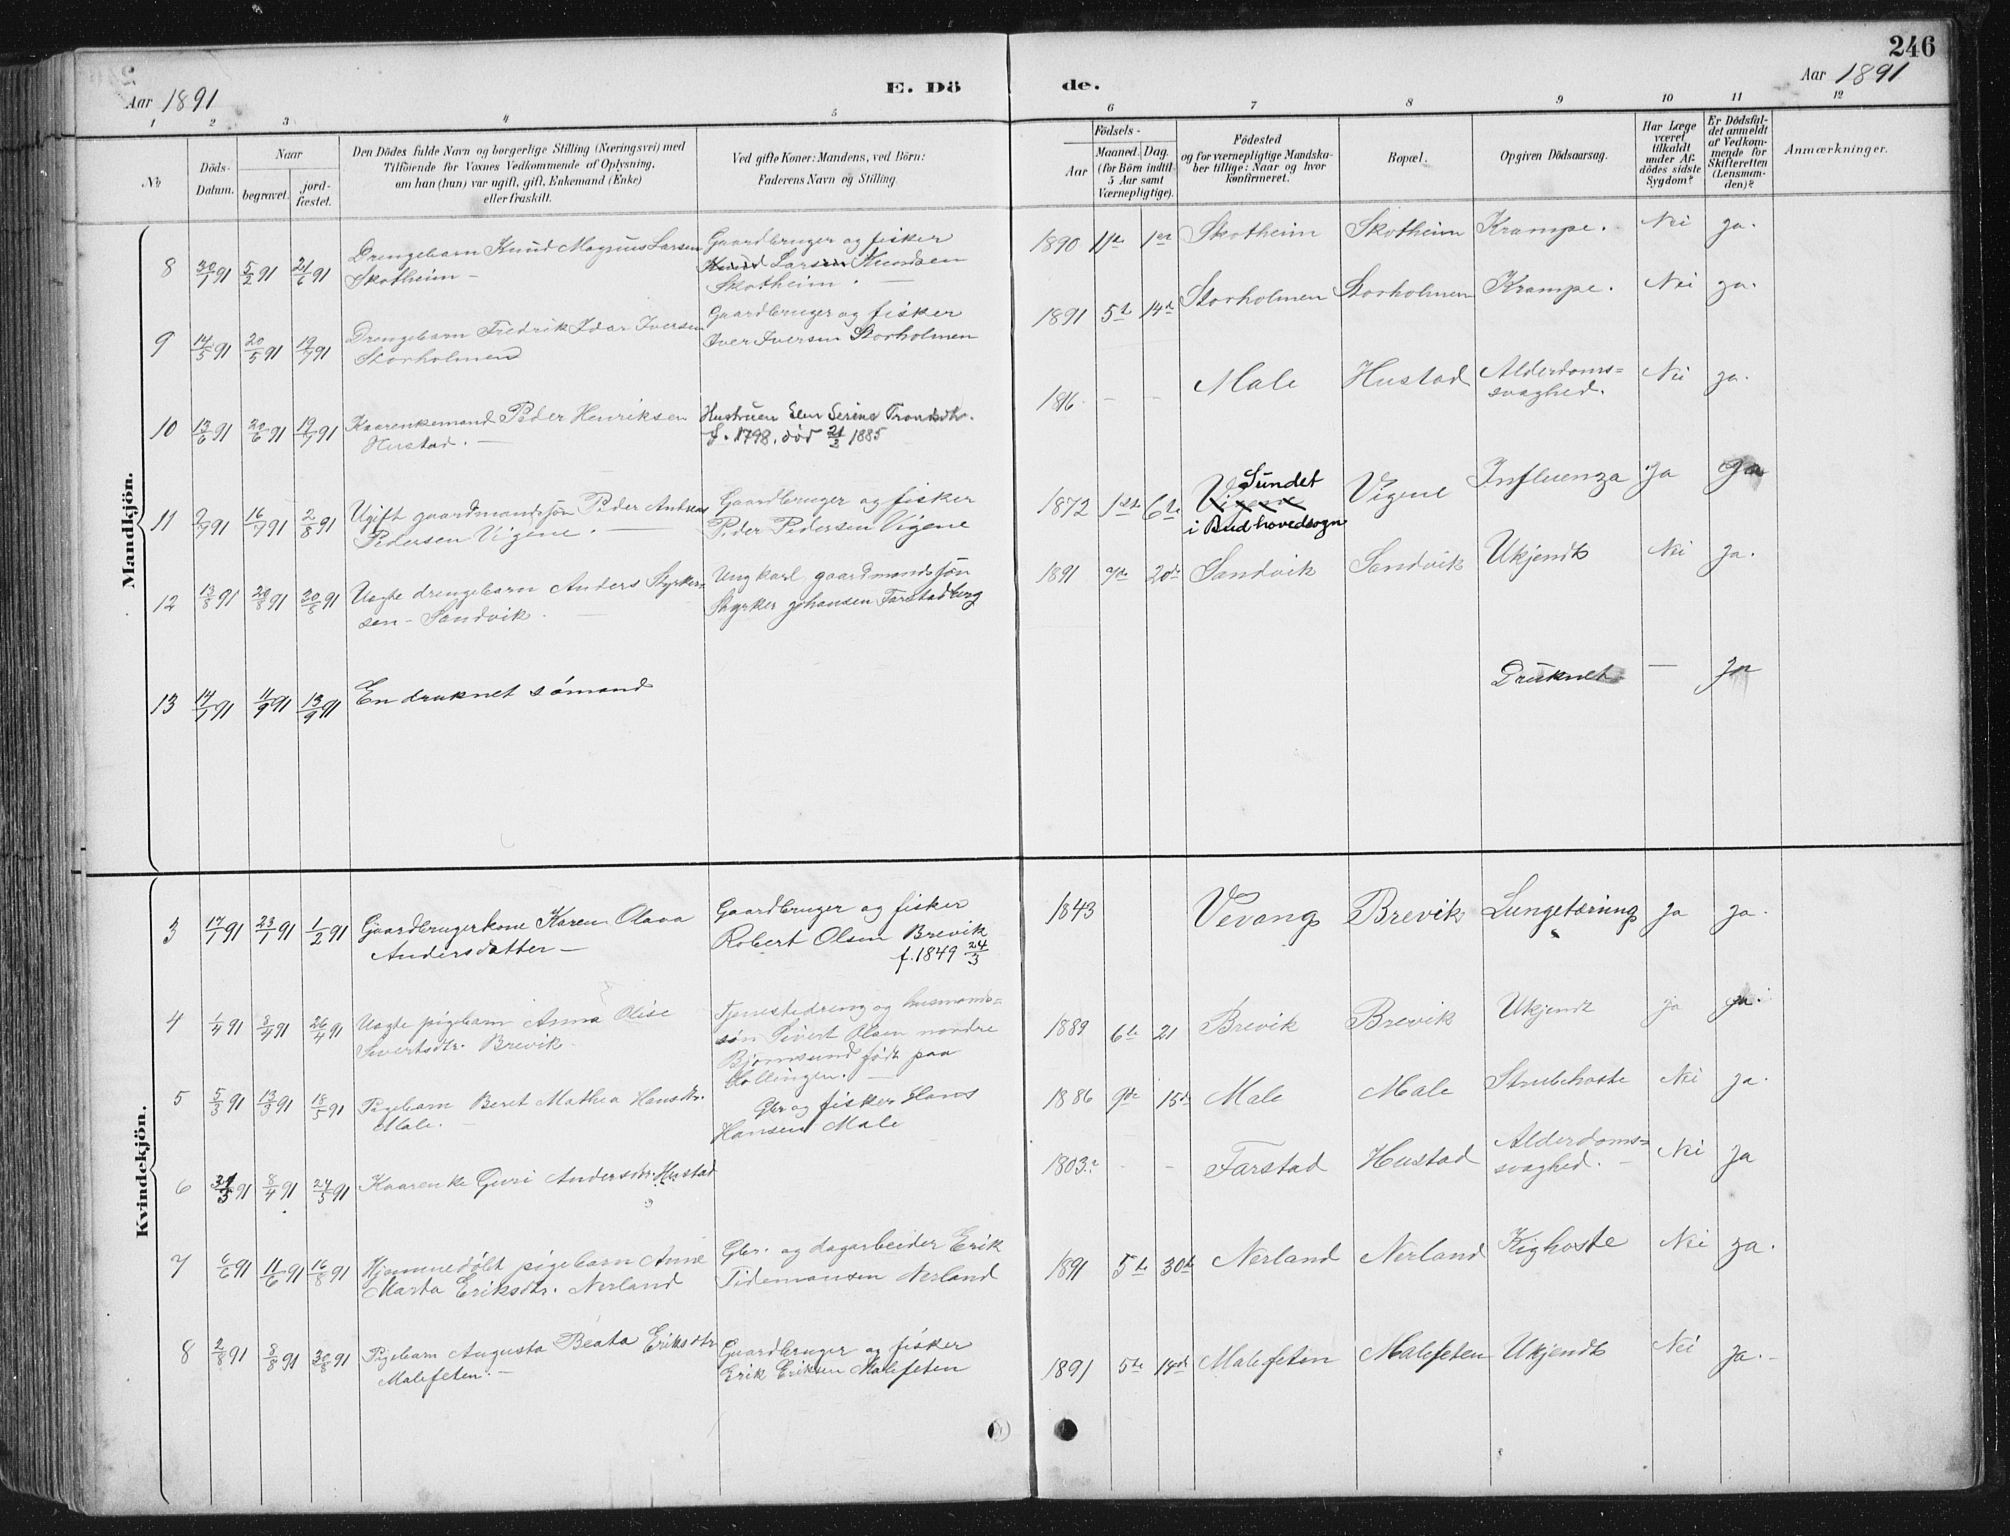 246
Aar 1891
E. Dö
de.
Aar 1891
1 2 3 4 5 6 7 8 9 10 11 12
No
Döds-
Datum.
Naar
begravet.
jord-
fæstet.
Den Dödes fulde Navn og borgerlige Stilling (Næringsvei) med
Tilföiende for Voxnes Vedkommende af Oplysning,
om han (hun) var ugift, gift, Enkemand (Enke)
eller fraskilt.
Ved gifte Koner: Mandens, ved Börn:
Faderens Navn og Stilling
Födsels-
Aar
Maaned.
Dag.
(for Börn indtil
5 Aar samt
Værnepligtige).
Födested
og for værnepligtige Mandska-
ber tillige: Naar og hvor
konfirmeret.
Bopæl.
Opgiven Dödsaarsag.
Har Læge
været
tilkaldt
under Af-
dödes sidste
Sygdom?
Er Dödsfal-
det anmeldt
af Vedkom-
mende for
Skifteretten
(Lensman-
den)?
Anmærkninger.
Mandkjön.
8 30/1 91 5/2 91 21/6 91 Drengebarn Knud Magnus Larsen
Skotheim –
Gaardbruger og fisker
Knud Larsen Knudsen
Skotheim. –
1890 11te 1ste Skotheim Skotheim Krampe. Nei ja.
9 14/5 91 20/5 91 19/7 91 Drengebarn Fredrik Idar Iversen
Storholmen
Gaardbruger og fisker
Iver Iversen Storholmen
1891 5te 14de Storholmen Storholmen Krampe. Nei ja.
10 13/6 91 20/6 91 19/7 91 Kaarenkemand Peder Henriksen
Hustad. –
Hustruen Serine
f. 1798, død 21/3 1885
1816 - - Male Hustad Alderdoms=
svaghed. Nei ja.
11 9/7 91 16/7 91 2/8 91 Ugift gaardmandssøn Peder Andreas
Pedersen Vigene. –
Gaardbruger og fisker
Peder Pedersen Vigene
1872 1ste 6te Vigene Sundet
i Bud hovedsogn
Vigene Influenza ja Ja
12 13/8 91 20/8 91 30/8 91 Uægte drengebarn Anders Styrker-
sen – Sandvik. –
Ungkarl, gaardmandssøn
Styrker Johansen Farstadberg
1891 20de Sandvik Sandvik Ukjendt Nei ja.
13 14/7 91 11/9 91 13/9 91 En druknet sømand
Druknet – Ja
Kvindekjön.
3 17/1 91 23/1 91 1/2 91 Gaardbrugerkone Karen Olava
Andersdatter –
Gaardbruger og fisker
Robert Olsen Brevik
f. 1849 24/3
1843 Vevang Brevik Lungetæring ja ja.
4 1/4 91 8/4 91 26/4 91 Uægte pigebarn Anna Olise
Sivertsdtr. Brevik.
Tjenestedreng og husmands=
søn Sivert Olsen nordre
Bjørnsund født paa
Hollingen. –
1889 6te 21 Brevik Brevik Ukjendt ja ja.
5 5/3 91 13/3 91 18/5 91 Pigebarn Beret Mathea Hansdtr.
Male. –
Gbr og fisker Hans
Hansen Male
1886 9de 15de Male Male Strubehoste Nei ja.
6 31/3 91 8/4 91 24/5 91 Kaarenke Guri Andersdtr. Hustad
1803. - - Farstad Hustad Alderdoms=
svaghed. – Nei Ja
7 6/6 91 11/6 91 16/8 91 Hjemmedøbt pigebarn Anne
Marta Eriksdtr. Nerland
Gbr. og dagarbeider Erik
Tidemansen Nerland
1891 5te 30te Nerland Nerland Kighoste Nei ja.
8 2/8 91 8/8 91 30/8 91 Pigebarn Augusta Beata Eriksdtr
Malefeten. –
Gaardbruger og fisker
Erik Eriksen Malefeten
1891 5te 14de Malefeten Malefeten Ukjendt Nei ja. –